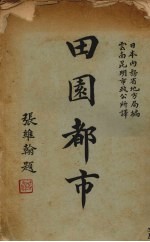 日本內務省地方局編
雲南昆明市政公所譯
田園都市
張維翰題